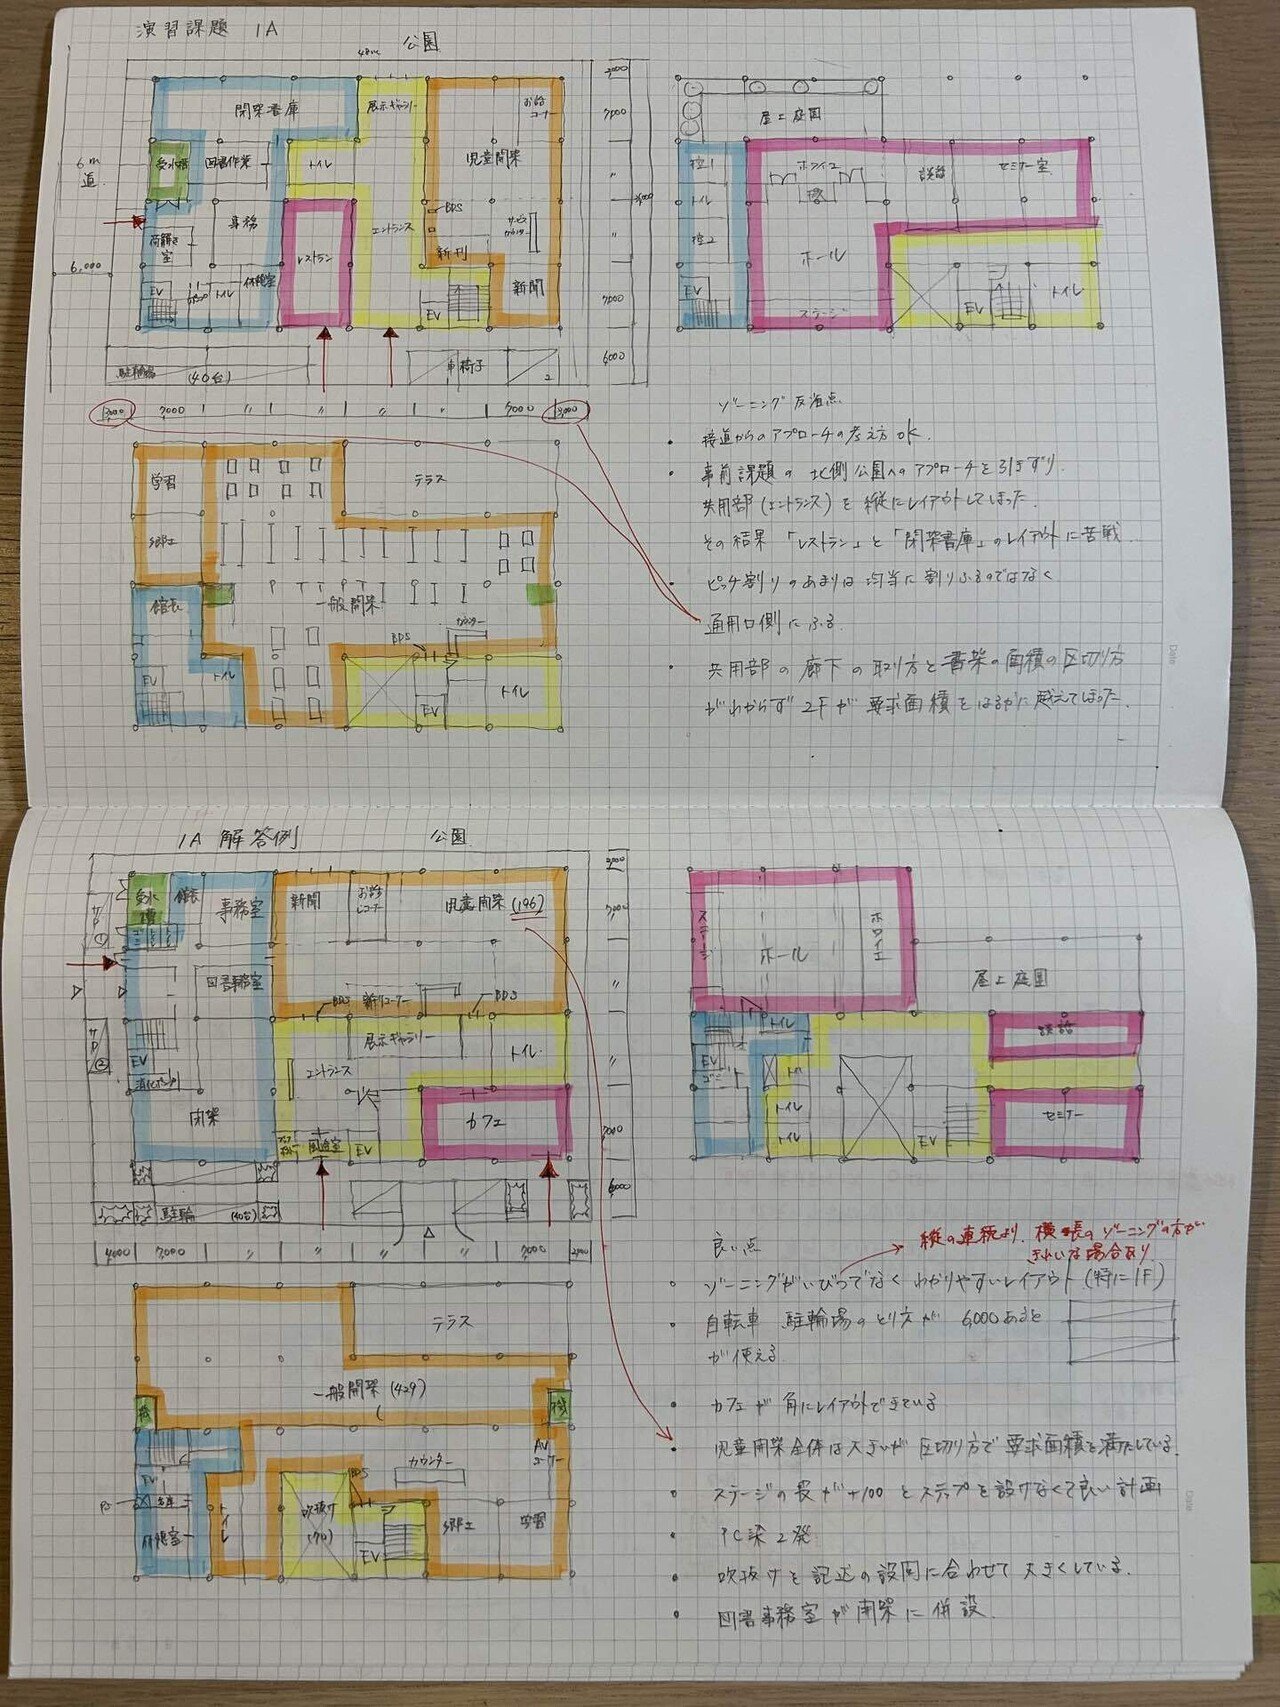 演習課題 1A
公園
48m
閉架書庫
展示ギャラリー
お話
コーナー
受水槽
図書作業
トイレ
児童開架
6m
道
事務
BDS
エントランス
サービス
カウンター
荷解き
室
レストラン
新刊
新聞
休憩室
6,000
EV
トイレ
EV
駐輪場
(40台)
車椅子
2
7000
〃
7000
6000
屋上庭園
控1
ホワイエ
談話
セミナー室
トイレ
控2
ホール
EV
ステージ
EV
トイレ
3000
7000
〃
〃
〃
7000
3000
学習
テラス
郷土
館長
一般開架
BDS
カウンター
EV
トイレ
EV
トイレ
ゾーニング反省点
・接道からのアプローチの考え方OK.
・事前課題の北側公園へのアプローチを引きずり
共用部(エントランス)を縦にレイアウトしてしまった
その結果「レストラン」と「閉架書庫」のレイアウトに苦戦
・ピッチ割りのあまりは均当に割りふるのではなく
通用口側にふる.
・共用部の廊下の取り方と書架の面積の区切り方
がわからず2Fが要求面積をはるかに越えてしまった.
1A 解答例
公園
受水槽
館長
事務室
新聞
お話
コーナー
児童開架(196)
図書事務室
BDS
新刊コーナー
BDS
展示ギャラリー
トイレ
エントランス
EV
消火ポンプ
閉架
カフェ
風除室
EV
駐輪
(40台)
7000
〃
〃
7000
6000
4000
7000
〃
〃
〃
〃
7000
ステージ
ホール
ホワイエ
屋上庭園
談話
トイレ
EV
トイレ
トイレ
EV
セミナー
テラス
一般開架(429)
機
機
AV
コーナー
EV
倉庫
PS
休憩室
トイレ
BDS
カウンター
吹抜け
(70)
EV
郷土
学習
良い点
縦の連続より、横長のゾーニングの方が
きれいな場合あり
・ゾーニングがいびつでなくわかりやすいレイアウト(特に1F)
・自転車 駐輪場のとり方が 6,000あると
が使える
・カフェが角にレイアウトできている
・児童開架全体は大きいが区切り方で要求面積を満たしている.
・ステージの長が+100とステップを設けなくて良い計画
・PC梁2発
・吹抜けを記述の設問に合わせて大きくしている.
・図書事務室が開架に併設.